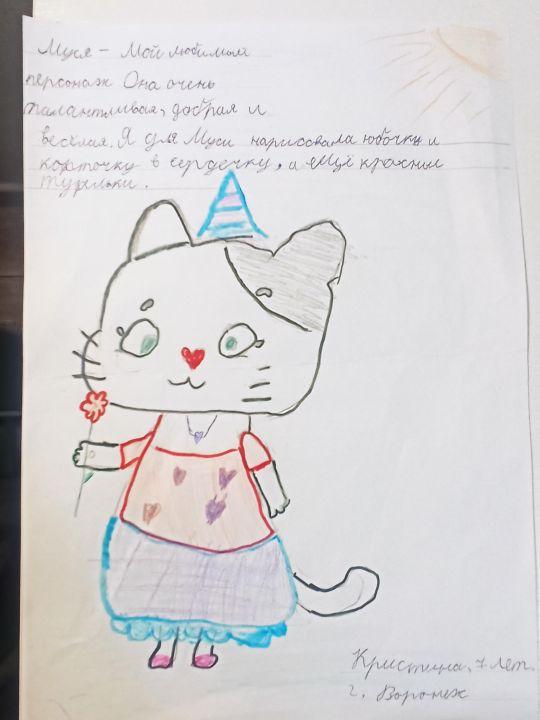 Муся - Мой любимый
персонаж Она очень
талантливая, добрая и
весёлая. Я для Муси нарисовала юбочку и
корточку в сердечку, а ещё красный
туфельки.
Кристина, 7 лет.
г. Воронеж